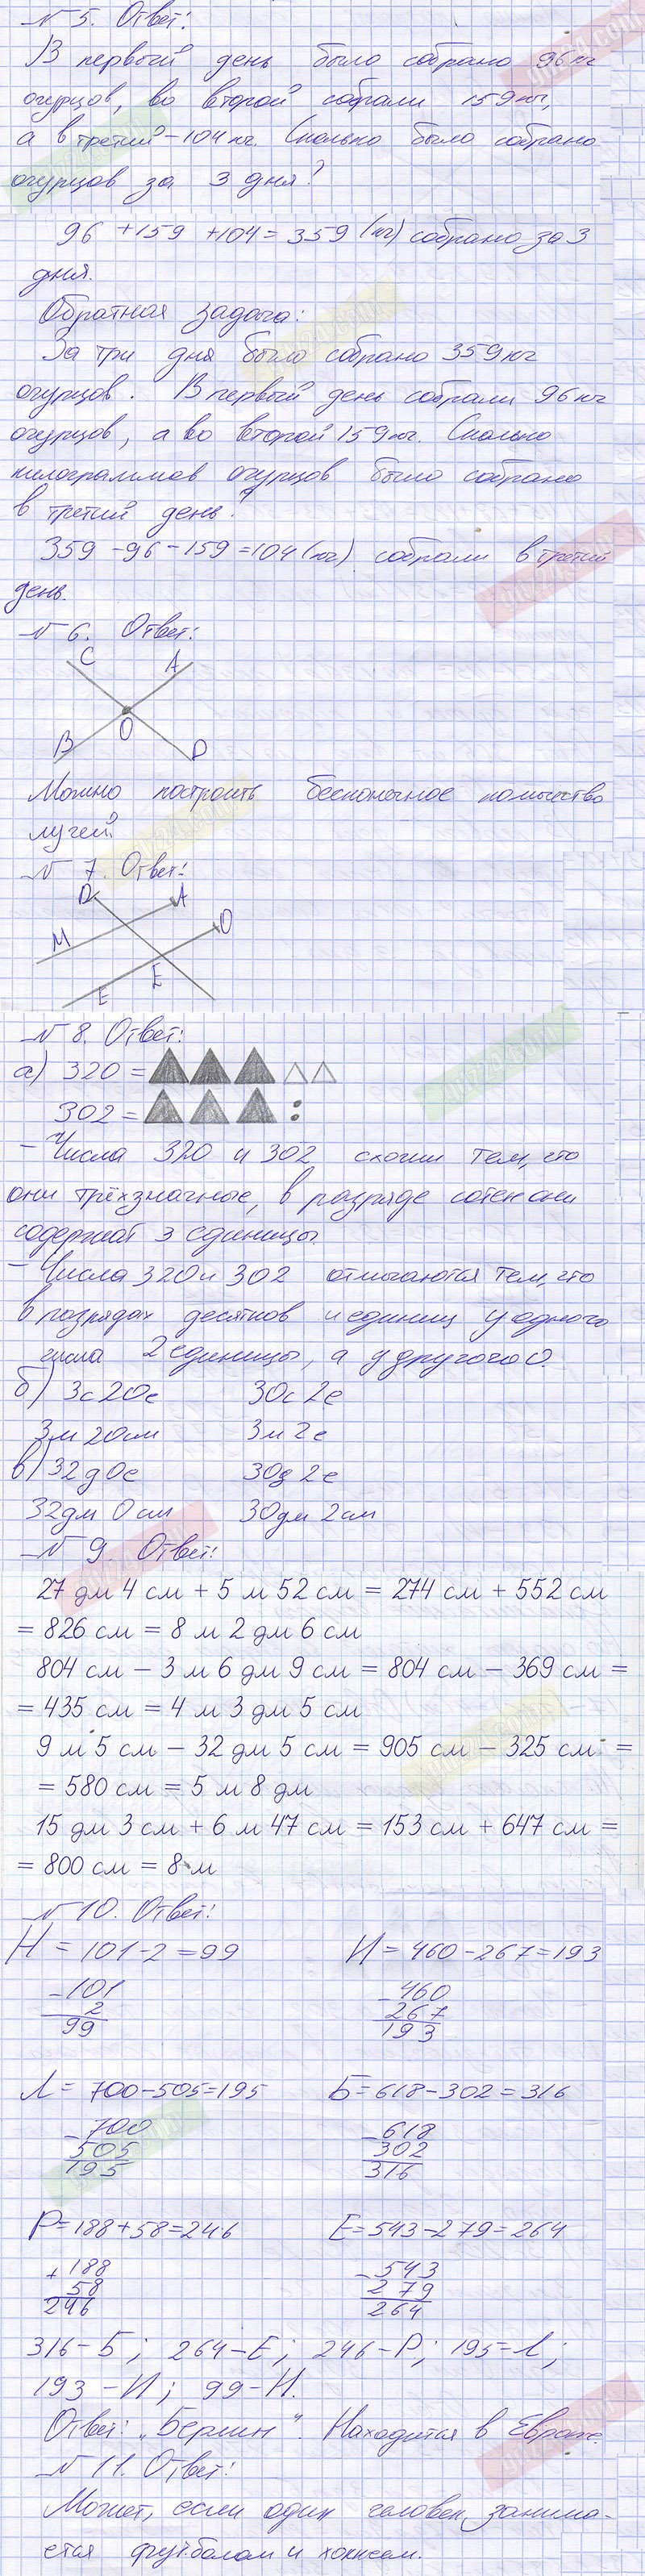 № 5. Ответ:
В первый день было собрано 96 кг
огурцов, во второй собрали 159 кг,
а в третий – 104 кг. Сколько было собрано
огурцов за 3 дня?
96 + 159 + 104 = 359 (кг) собрано за 3
дня.
Обратная задача:
За три дня было собрано 359 кг
огурцов. В первый день собрали 96 кг
огурцов, а во второй 159 кг. Сколько
килограммов огурцов было собрано
в третий день?
359 – 96 – 159 = 104 (кг) собрали в третий
день.
№ 6. Ответ:
C A
O
B D
Можно построить бесконечное количество
лучей.
№ 7. Ответ:
D A
O
M
E
E
№ 8. Ответ:
а) 320 =
302 =
– Числа 320 и 302 схожи тем, что
они трёхзначные, в разряде сотен они
содержат 3 единицы.
– Числа 320 и 302 отличаются тем, что
в разрядах десятков и единиц у одного
числа 2 единицы, а у другого 0.
б) 3с 20е 30с 2е
3м 20см 3м 2е
в) 32д 0е 30д 2е
32дм 0см 30дм 2см
№ 9. Ответ:
27 дм 4 см + 5 м 52 см = 274 см + 552 см
= 826 см = 8 м 2 дм 6 см
804 см – 3 м 6 дм 9 см = 804 см – 369 см =
= 435 см = 4 м 3 дм 5 см
9 м 5 см – 32 дм 5 см = 905 см – 325 см =
= 580 см = 5 м 8 дм
15 дм 3 см + 6 м 47 см = 153 см + 647 см =
= 800 см = 8 м
№ 10. Ответ:
Н = 101 – 2 = 99 И = 460 – 267 = 193
– 101 – 460
2 267
99 193
Л = 700 – 505 = 195 Б = 618 – 302 = 316
– 700 – 618
505 302
195 316
Р = 188 + 58 = 246 Е = 543 – 279 = 264
+ 188 – 543
58 279
246 264
316 – Б; 264 – Е; 246 – Р; 195 = Л;
193 – И; 99 – Н.
Ответ: „Берлин". Находится в Европе.
№ 11. Ответ:
Может, если один человек занима-
ется футболом и хоккеем.